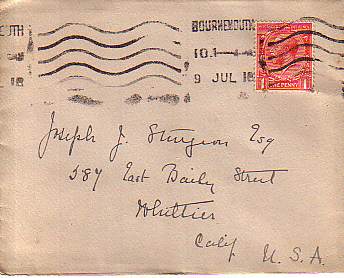 OUTH
18
BOURNEMOUTH
10.1
9 JUL 18
1 ONE PENNY 1
Joseph J. Sturgeon Esq
587 East Baily Street
Whittier
Calif
U.S.A.